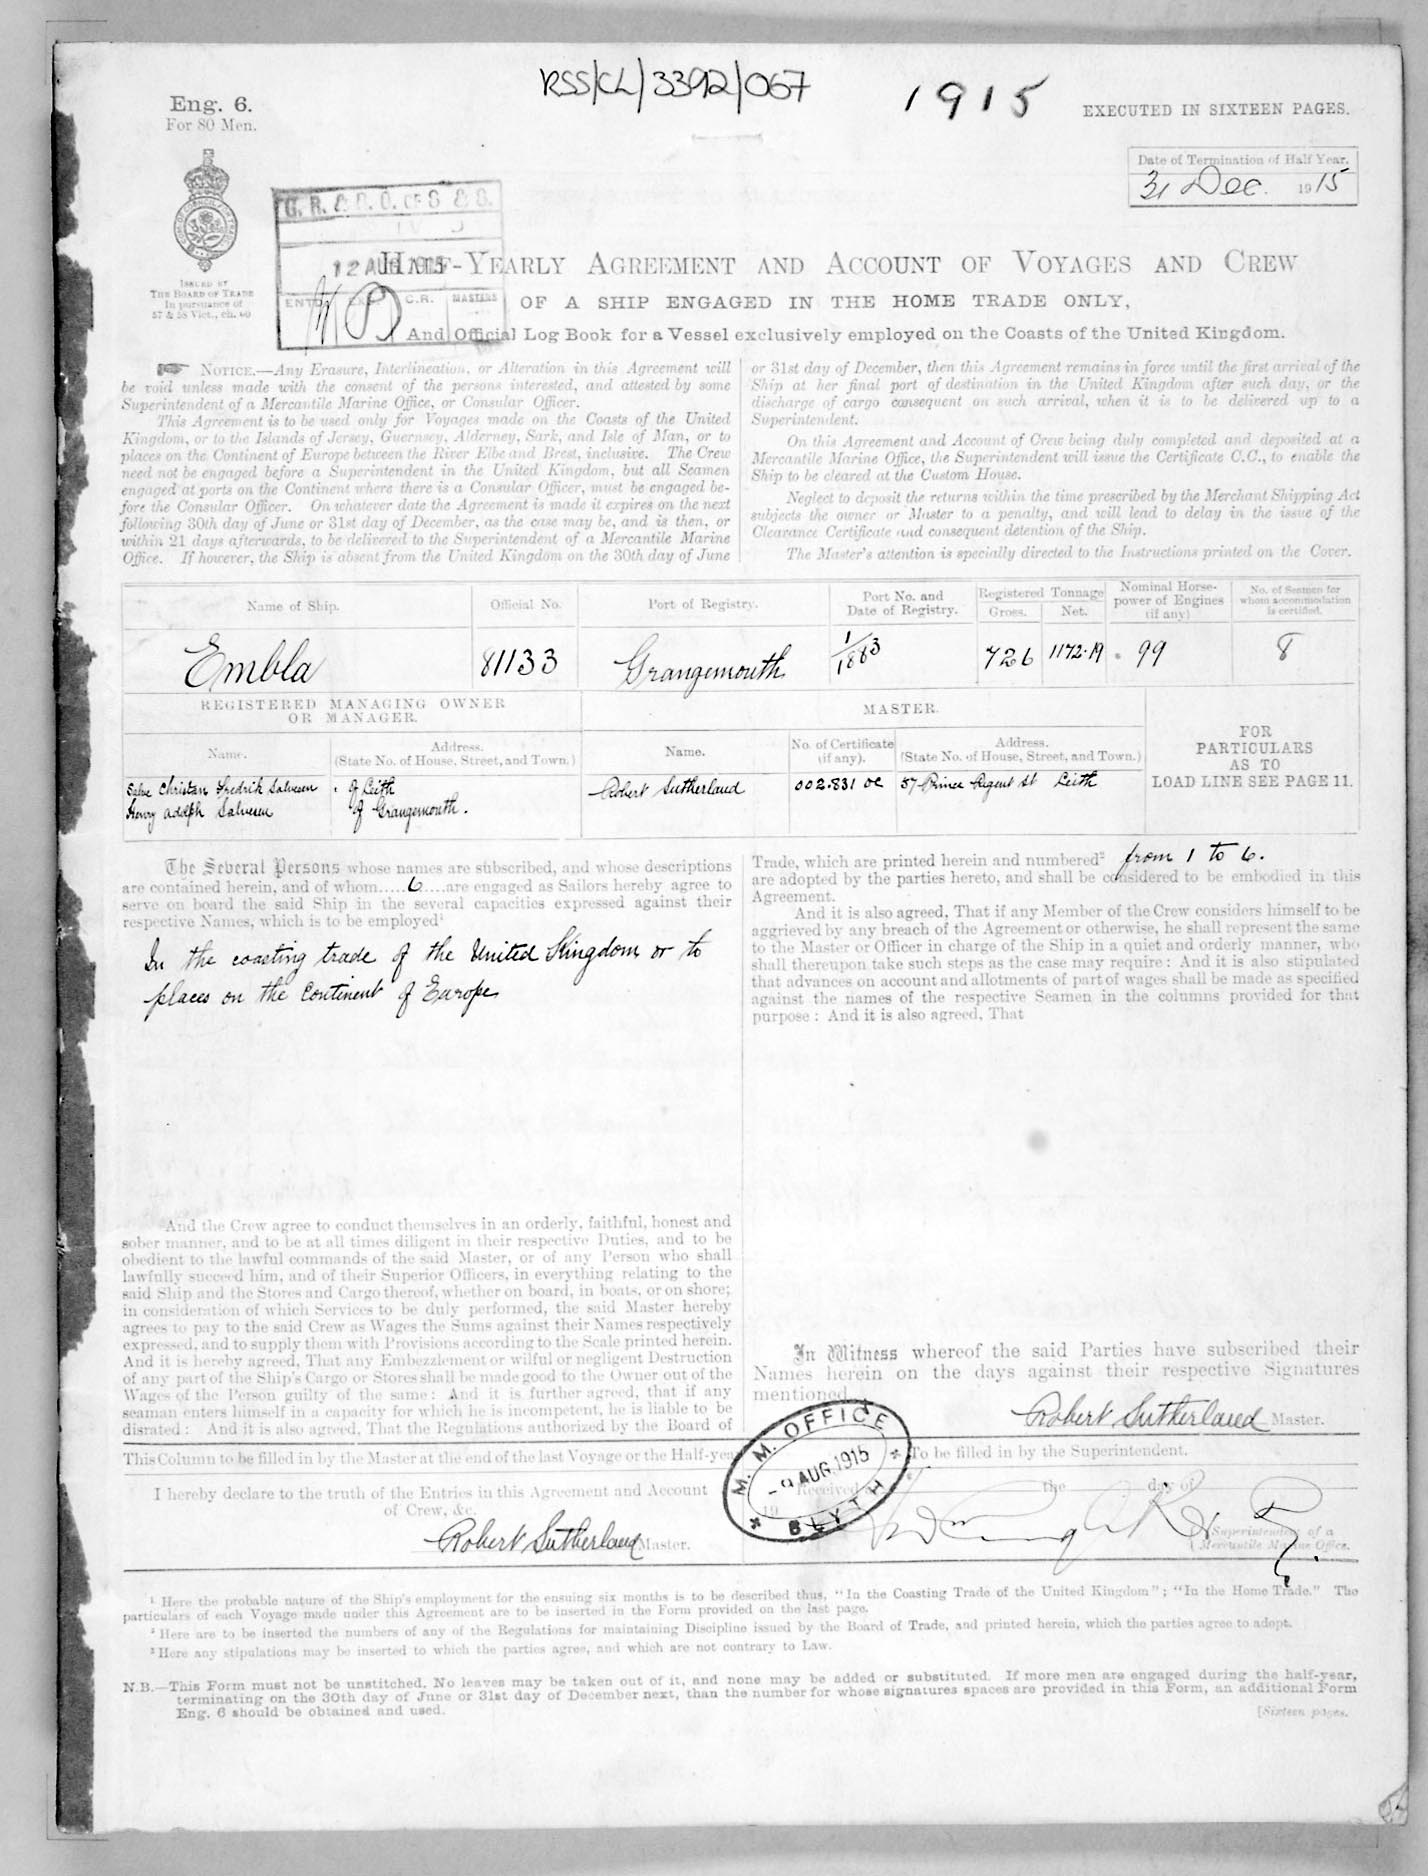 RSS/CL/3392/067
1915
Eng. 6.
For 80 Men.
EXECUTED IN SIXTEEN PAGES.
Date of Termination of Half Year.
31 Dec. 1915
ISSUED BY
THE BOARD OF TRADE
In pursuance of
57 & 58 Vict., ch. 60
G. R. & R. O. OF S & S.
12 AUG 1915
ENTD. C.R. MASTERS
HALF-YEARLY AGREEMENT AND ACCOUNT OF VOYAGES AND CREW
OF A SHIP ENGAGED IN THE HOME TRADE ONLY,
And Official Log Book for a Vessel exclusively employed on the Coasts of the United Kingdom.
NOTICE.—Any Erasure, Interlineation, or Alteration in this Agreement will
be void unless made with the consent of the persons interested, and attested by some
Superintendent of a Mercantile Marine Office, or Consular Officer.
This Agreement is to be used only for Voyages made on the Coasts of the United
Kingdom, or to the Islands of Jersey, Guernsey, Alderney, Sark, and Isle of Man, or to
places on the Continent of Europe between the River Elbe and Brest, inclusive. The Crew
need not be engaged before a Superintendent in the United Kingdom, but all Seamen
engaged at ports on the Continent where there is a Consular Officer, must be engaged be-
fore the Consular Officer. On whatever date the Agreement is made it expires on the next
following 30th day of June or 31st day of December, as the case may be, and is then, or
within 21 days afterwards, to be delivered to the Superintendent of a Mercantile Marine
Office. If however, the Ship is absent from the United Kingdom on the 30th day of June
or 31st day of December, then this Agreement remains in force until the first arrival of the
Ship at her final port of destination in the United Kingdom after such day, or the
discharge of cargo consequent on such arrival, when it is to be delivered up to a
Superintendent.
On this Agreement and Account of Crew being duly completed and deposited at a
Mercantile Marine Office, the Superintendent will issue the Certificate C.C., to enable the
Ship to be cleared at the Custom House.
Neglect to deposit the returns within the time prescribed by the Merchant Shipping Act
subjects the owner or Master to a penalty, and will lead to delay in the issue of the
Clearance Certificate and consequent detention of the Ship.
The Master's attention is specially directed to the Instructions printed on the Cover.
Name of Ship. Official No. Port of Registry. Port No. and Date of Registry. Registered Tonnage Gross. Net. Nominal Horse-power of Engines (if any) No. of Seamen for whom accommodation is certified.
Embla 81133 Grangemouth 1/1883 726 1172.19 99 8
REGISTERED MANAGING OWNER
OR MANAGER.
MASTER.
FOR
PARTICULARS
AS TO
LOAD LINE SEE PAGE 11.
Name. Address. (State No. of House, Street, and Town.) Name. No. of Certificate (if any). Address. (State No. of House, Street, and Town.)
Salve Christian Fredrik Salvesen of Leith Robert Sutherland 002.831 OC 57 Prince Regent St Leith
Henry Adolph Salvesen of Grangemouth.
The Several Persons whose names are subscribed, and whose descriptions
are contained herein, and of whom.....6....are engaged as Sailors hereby agree to
serve on board the said Ship in the several capacities expressed against their
respective Names, which is to be employed¹
In the coasting trade of the United Kingdom or to
places on the Continent of Europe
And the Crew agree to conduct themselves in an orderly, faithful, honest and
sober manner, and to be at all times diligent in their respective Duties, and to be
obedient to the lawful commands of the said Master, or of any Person who shall
lawfully succeed him, and of their Superior Officers, in everything relating to the
said Ship and the Stores and Cargo thereof, whether on board, in boats, or on shore;
in consideration of which Services to be duly performed, the said Master hereby
agrees to pay to the said Crew as Wages the Sums against their Names respectively
expressed, and to supply them with Provisions according to the Scale printed herein.
And it is hereby agreed, That any Embezzlement or wilful or negligent Destruction
of any part of the Ship's Cargo or Stores shall be made good to the Owner out of the
Wages of the Person guilty of the same: And it is further agreed, that if any
seaman enters himself in a capacity for which he is incompetent, he is liable to be
disrated: And it is also agreed, That the Regulations authorized by the Board of
Trade, which are printed herein and numbered² from 1 to 6.
are adopted by the parties hereto, and shall be considered to be embodied in this
Agreement.
And it is also agreed, That if any Member of the Crew considers himself to be
aggrieved by any breach of the Agreement or otherwise, he shall represent the same
to the Master or Officer in charge of the Ship in a quiet and orderly manner, who
shall thereupon take such steps as the case may require: And it is also stipulated
that advances on account and allotments of part of wages shall be made as specified
against the names of the respective Seamen in the columns provided for that
purpose: And it is also agreed, That
In Witness whereof the said Parties have subscribed their
Names herein on the days against their respective Signatures
mentioned.
Robert Sutherland Master.
This Column to be filled in by the Master at the end of the last Voyage or the Half-year
I hereby declare to the truth of the Entries in this Agreement and Account
of Crew, &c.
Robert Sutherland Master.
To be filled in by the Superintendent.
M. M. OFFICE
-9 AUG. 1915
BLYTH
Received the day of
19
Superintendent of a
Mercantile Marine Office.
¹ Here the probable nature of the Ship's employment for the ensuing six months is to be described thus, "In the Coasting Trade of the United Kingdom"; "In the Home Trade." The
particulars of each Voyage made under this Agreement are to be inserted in the Form provided on the last page.
² Here are to be inserted the numbers of any of the Regulations for maintaining Discipline issued by the Board of Trade, and printed herein, which the parties agree to adopt.
³ Here any stipulations may be inserted to which the parties agree, and which are not contrary to Law.
N.B.—This Form must not be unstitched. No leaves may be taken out of it, and none may be added or substituted. If more men are engaged during the half-year,
terminating on the 30th day of June or 31st day of December next, than the number for whose signatures spaces are provided in this Form, an additional Form
Eng. 6 should be obtained and used.
[Sixteen pages.